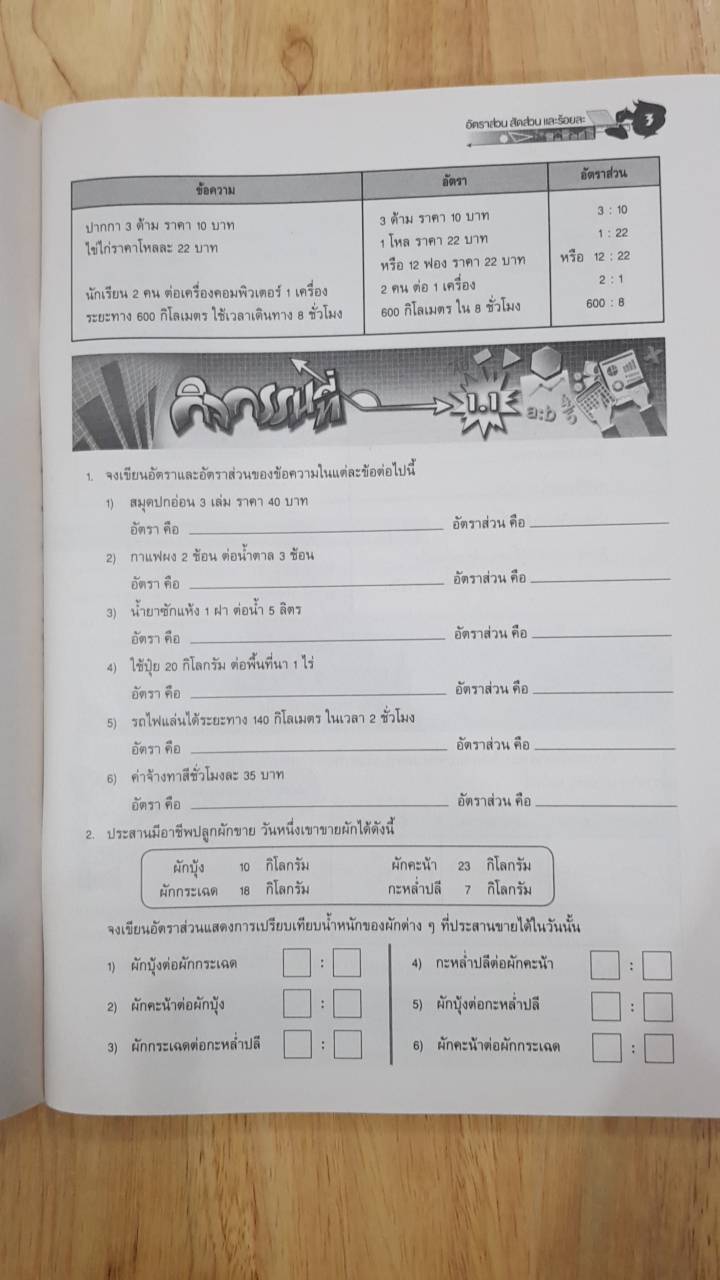 อัตราส่วน สัดส่วน และร้อยละ 3
ข้อความ อัตรา อัตราส่วน
ปากกา 3 ด้าม ราคา 10 บาท 3 ด้าม ราคา 10 บาท 3 : 10
ไข่ไก่ราคาโหลละ 22 บาท 1 โหล ราคา 22 บาท 1 : 22
หรือ 12 ฟอง ราคา 22 บาท หรือ 12 : 22
นักเรียน 2 คน ต่อเครื่องคอมพิวเตอร์ 1 เครื่อง 2 คน ต่อ 1 เครื่อง 2 : 1
ระยะทาง 600 กิโลเมตร ใช้เวลาเดินทาง 8 ชั่วโมง 600 กิโลเมตร ใน 8 ชั่วโมง 600 : 8
กิจกรรมที่ 1.1 a:b
1. จงเขียนอัตราและอัตราส่วนของข้อความในแต่ละข้อต่อไปนี้
1) สมุดปกอ่อน 3 เล่ม ราคา 40 บาท
อัตรา คือ อัตราส่วน คือ
2) กาแฟผง 2 ช้อน ต่อน้ำตาล 3 ช้อน
อัตรา คือ อัตราส่วน คือ
3) น้ำยาซักแห้ง 1 ฝา ต่อน้ำ 5 ลิตร
อัตรา คือ อัตราส่วน คือ
4) ใช้ปุ๋ย 20 กิโลกรัม ต่อพื้นที่นา 1 ไร่
อัตรา คือ อัตราส่วน คือ
5) รถไฟแล่นได้ระยะทาง 140 กิโลเมตร ในเวลา 2 ชั่วโมง
อัตรา คือ อัตราส่วน คือ
6) ค่าจ้างทาสีชั่วโมงละ 35 บาท
อัตรา คือ อัตราส่วน คือ
2. ประสานมีอาชีพปลูกผักขาย วันหนึ่งเขาขายผักได้ดังนี้
ผักบุ้ง 10 กิโลกรัม ผักคะน้า 23 กิโลกรัม
ผักกระเฉด 18 กิโลกรัม กะหล่ำปลี 7 กิโลกรัม
จงเขียนอัตราส่วนแสดงการเปรียบเทียบน้ำหนักของผักต่าง ๆ ที่ประสานขายได้ในวันนั้น
1) ผักบุ้งต่อผักกระเฉด : 4) กะหล่ำปลีต่อผักคะน้า :
2) ผักคะน้าต่อผักบุ้ง : 5) ผักบุ้งต่อกะหล่ำปลี :
3) ผักกระเฉดต่อกะหล่ำปลี : 6) ผักคะน้าต่อผักกระเฉด :